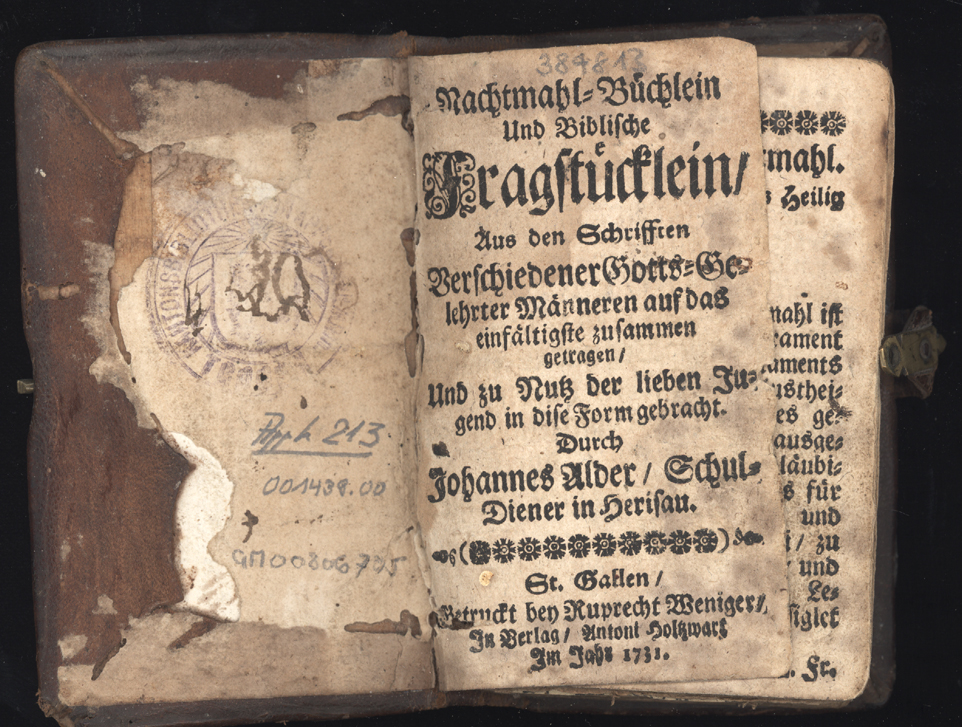 213
001438.00
GM00806795
384813
Nachtmahl-Büchlein
Und Biblische
Fragstücklein/
Aus den Schrifften
Verschiedener Gotts-Ge-
lehrter Männeren auf das
einfältigste zusammen
getragen/
Und zu Nutz der lieben Ju-
gend in dise Form gebracht.
Durch
Johannes Alder / Schul-
Diener in Herisau.
St. Gallen /
Getruckt bey Ruprecht Weniger/
In Verlag/ Antoni Holtzwart
Im Jahr 1731.
mahl.
s Heilig
mahl ist
rament
aments
usthei-
es ge-
ausge-
läubi-
s für
und
i/ zu
und
Le-
siglet
Fr.